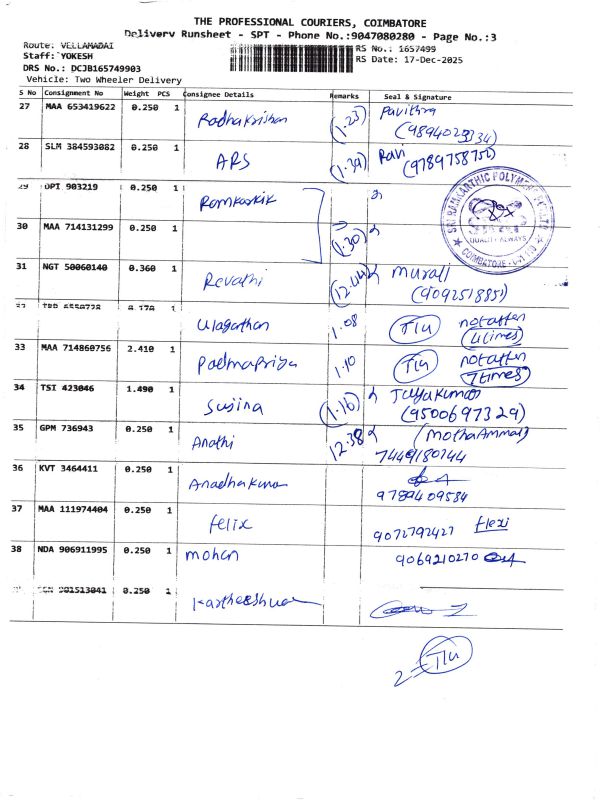 THE PROFESSIONAL COURIERS, COIMBATORE
Delivery Runsheet - SPT - Phone No.:9047080280 - Page No.:3
Route: VELLAMADAI
RS No.: 1657499
Staff: YOKESH
RS Date: 17-Dec-2025
DRS No.: DCJB165749903
Vehicle: Two Wheeler Delivery
S No Consignment No Weight PCS Consignee Details Remarks Seal & Signature
27 MAA 653419622 0.250 1 Radhakrishan (1.23) Pavithra
(9894023334)
28 SLM 384593082 0.250 1 ARS (1.39) Ravi (9789758752)
29 DPI 903219 0.250 1 Ramkarthik
SRI RAMKARTHIC POLYMERS
QUALITY ALWAYS
COIMBATORE
30 MAA 714131299 0.250 1 (1.30)
31 NGT 50060140 0.360 1 Revathi (12.44) Murali
(9092518851)
0.170 1 Ulagathan 1.08
(4 times)
33 MAA 714860756 2.410 1 Padmapriya 1.10
(7 times)
34 TSI 423046 1.490 1 Sujina (1.16) Jayakumar
(9500697329)
35 GPM 736943 0.250 1 Anathi 12.38 (MothaAmmal)
7449180244
36 KVT 3464411 0.250 1 Anadhakumar
9789409584
37 MAA 111974404 0.250 1 Felix 9072792427 flexi
38 NDA 906911995 0.250 1 mohan 9069210270
0.250 1